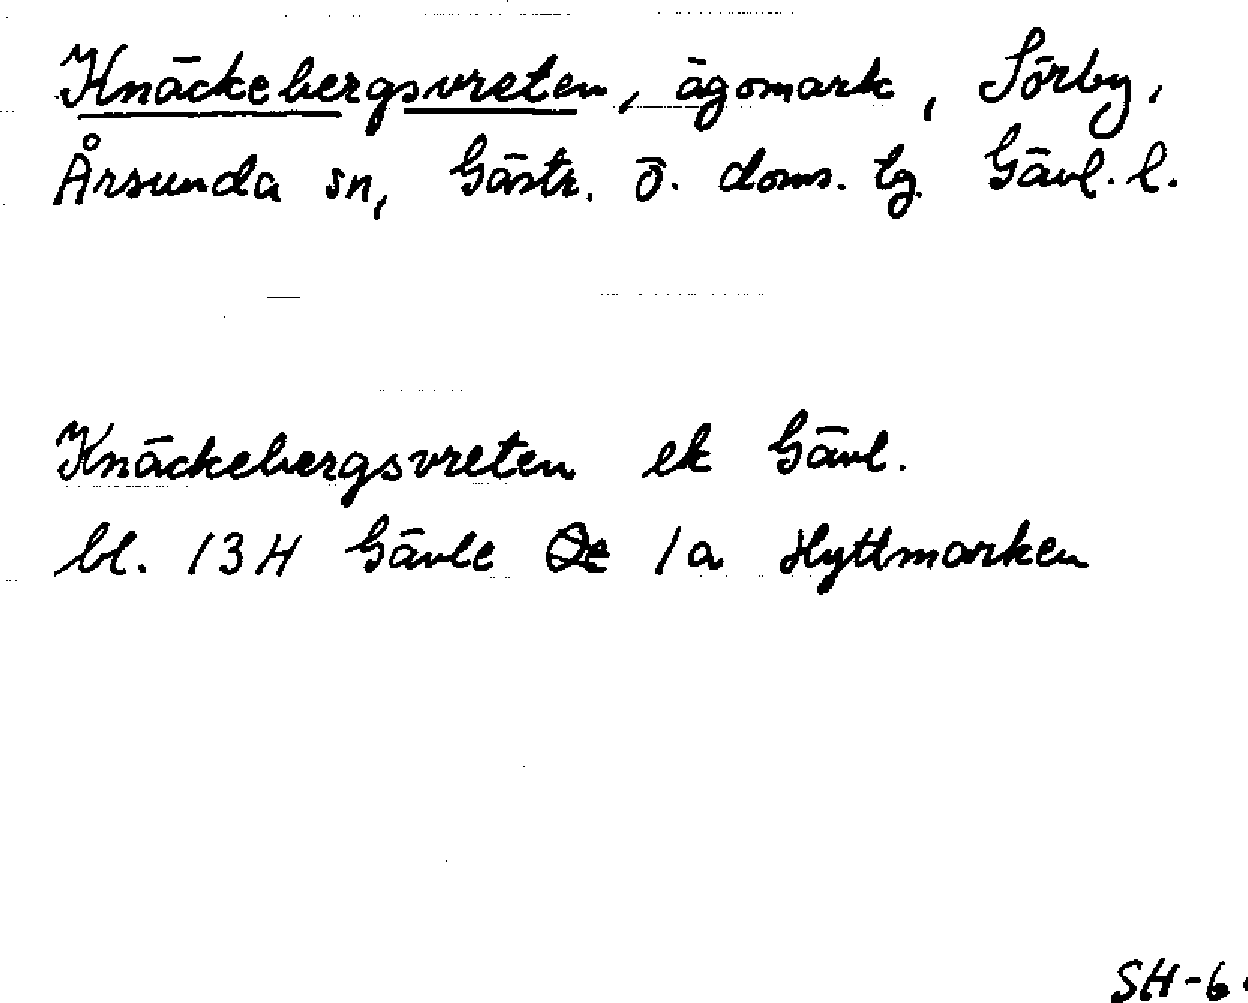 Knäckebergsvreten, ägomark, Sörby,
Årsunda sn, Gästr. ö. doms. tg Gävl. l.
Knäckebergsvreten ek Gävl.
bl. 13H Gävle 1a Hyttmarken
SH-6